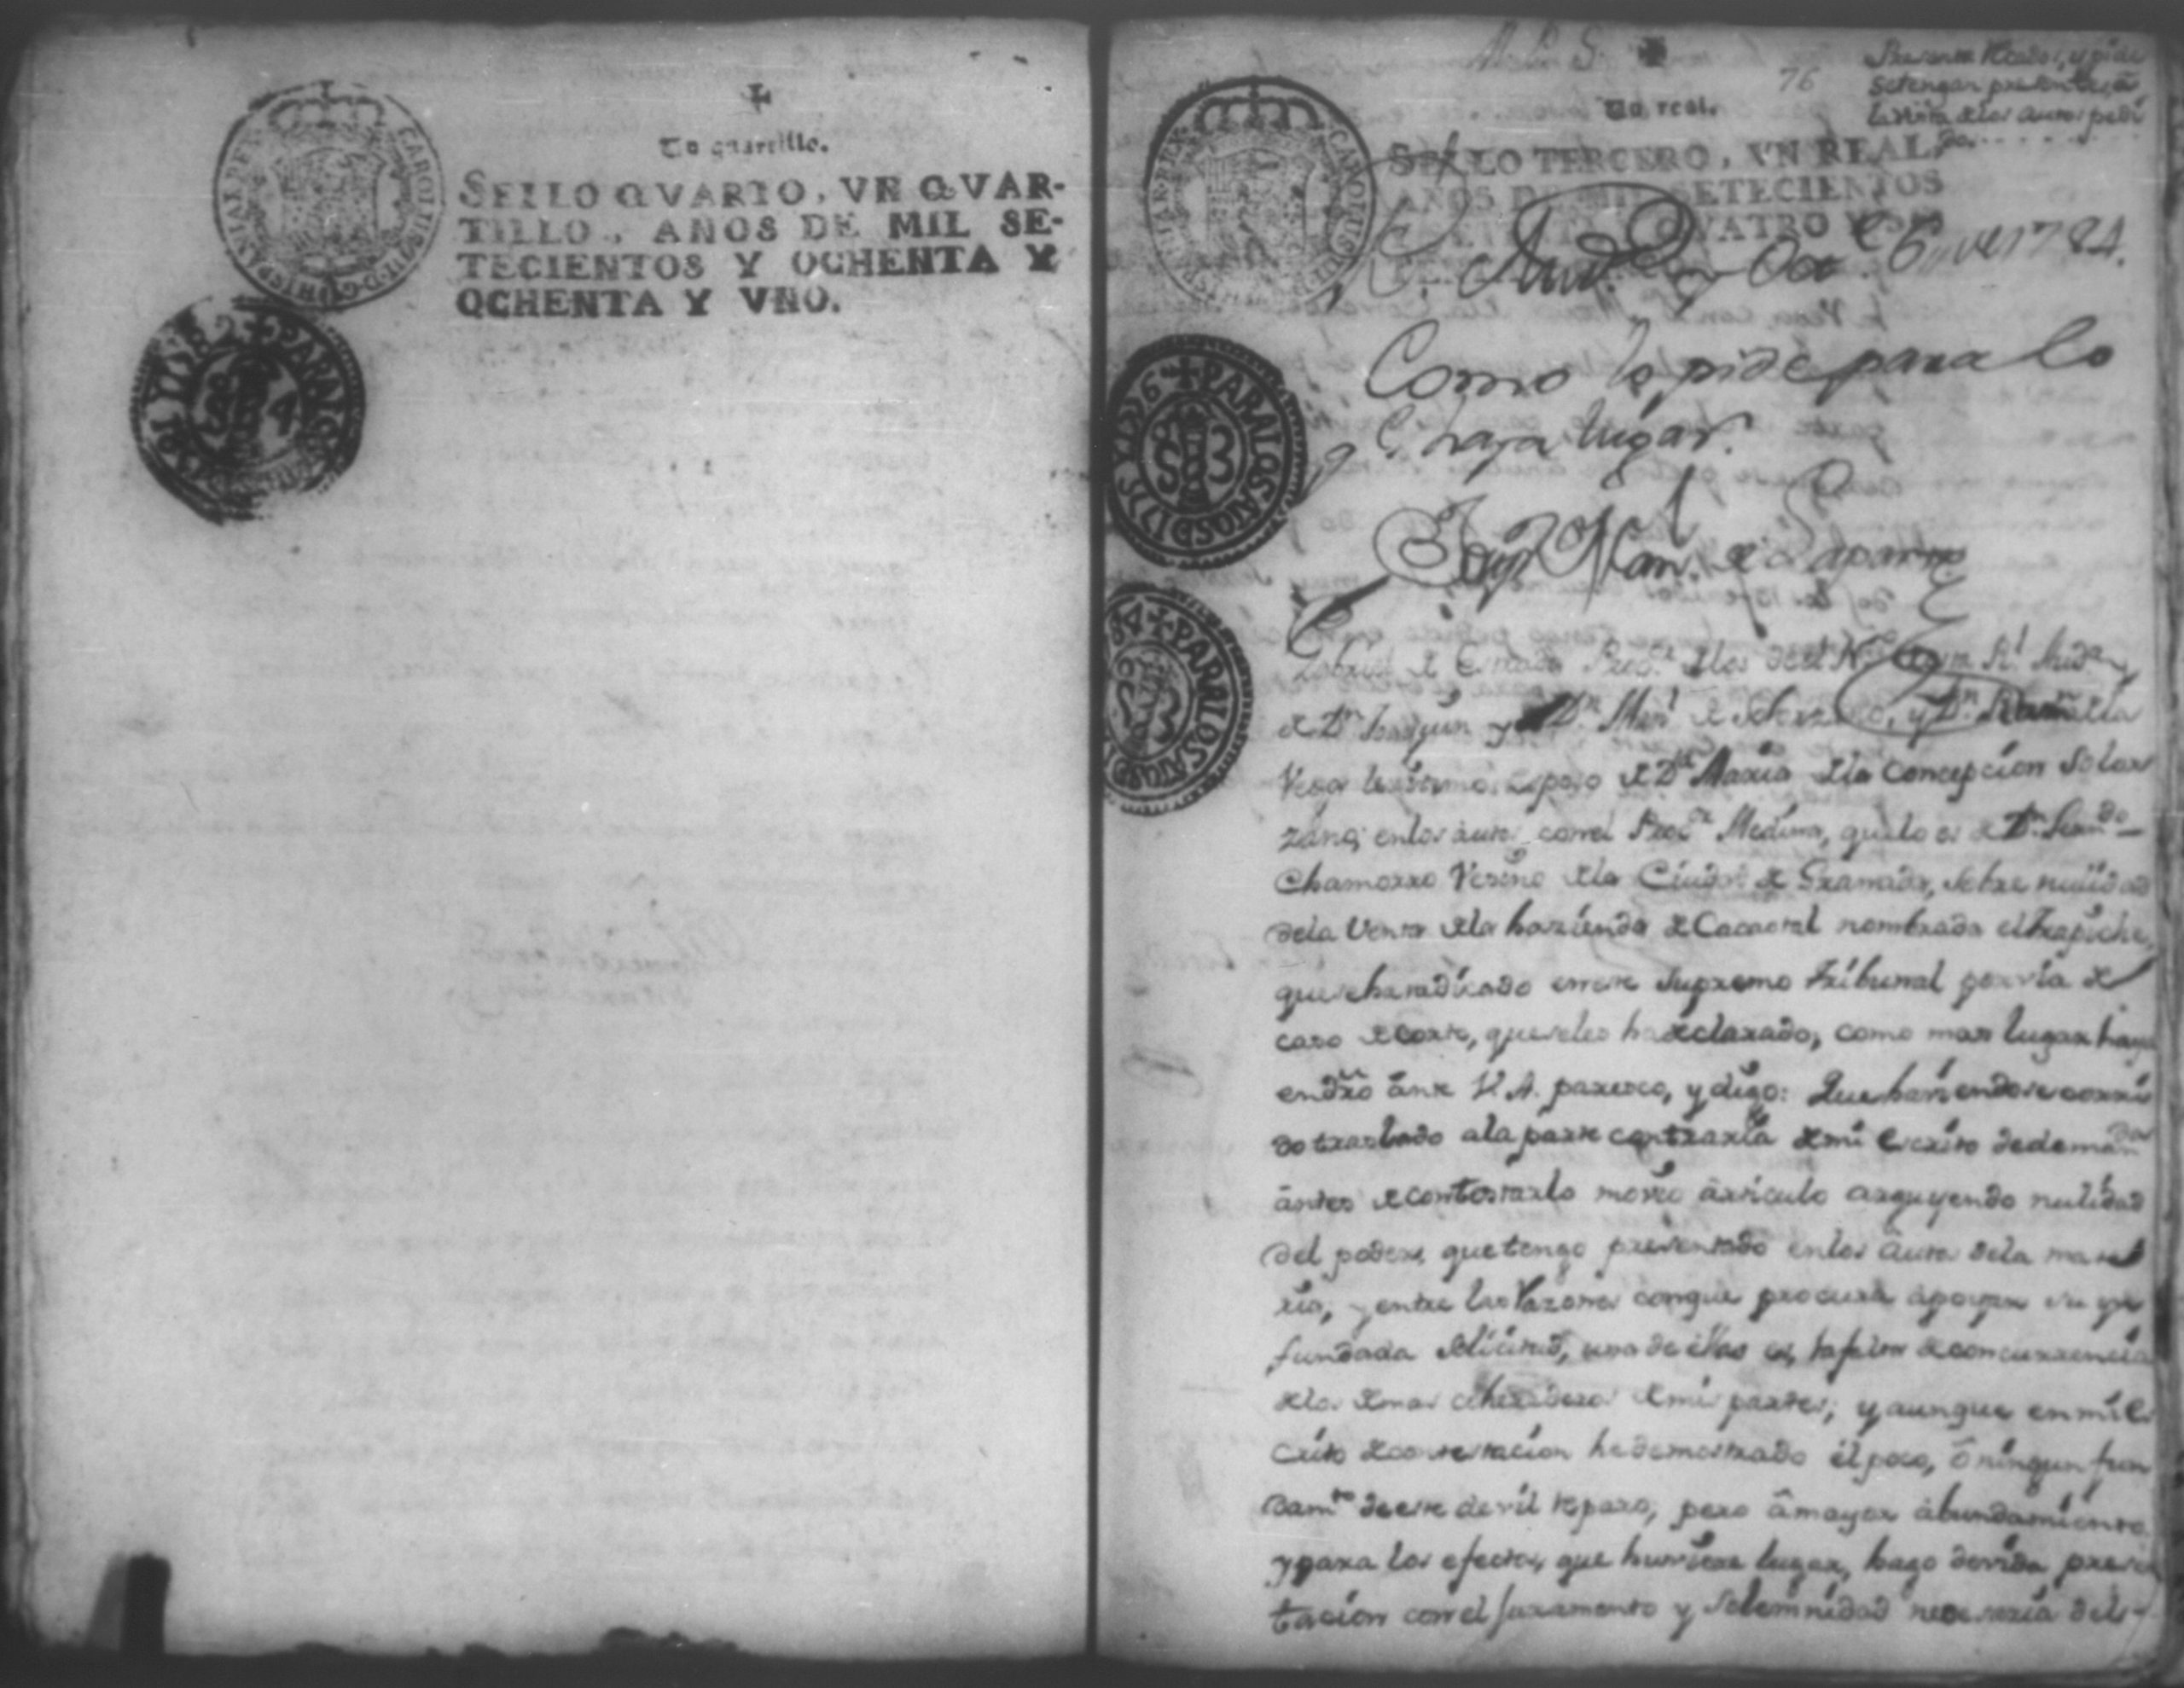 Un quartillo.
SELLO QVARTO, VN QVAR-
TILLO, AÑOS DE MIL SE-
TECIENTOS Y OCHENTA Y
OCHENTA Y VNO.
M. P. S.
76
Presenta Recados, y pide
se tengan presentes â
la vista de los autos pedi
dos
Un real.
SELLO TERCERO, VN REAL,
AÑOS DE MIL SETECIENTOS
Y QVATRO Y
R.l Aud.a y Oct.e 6,, de 1784.
Como lo pide para lo
q.e haya lugar.
PARA LOS AÑOS D 1775 Y 1776
S 3
PARA LOS AÑOS D
de Cirtado Proc.or de los del N.o de esta R.l Aud.a
de D.n Joaquin y D.n Man.l de Solorzano, y D.n de la
Vega lexitimo esposo de D.a Maria de la Concepcion Solor
zano; en los autos con el Proc.or Medina, que lo es de D.n Fern.do
Chamorro Vesino de la Ciudad de Granada, sobre nulidad
de la Venta de la hazienda de Cacaotal nombrada el Trapiche,
que se ha radicado en este Supremo Tribunal por via de
caso de corte, que se les ha declarado, como mas lugar haya
en dro ante V. A. paresco, y digo: Que haviendose corri
do traslado a la parte contraria de mi escrito de deman.da
ântes de contestarlo movio ârticulo arguyendo nulidad
del poder, que tengo presentado en los âutos de la mate
ria; y entre las razones conque procura âpoyar su yn
fundada solicitud, una de ellas es, la falta de concurrencia
de los demas coherederos de mis partes; y aunque en mi es
crito de contestacion he demostrado el poco, ô ningun fun
dam.to de este devil reparo; pero â mayor âbundamiento
y para los efectos, que huviere lugar, hago devida presen
tacion con el juramento y solemnidad necesaria del